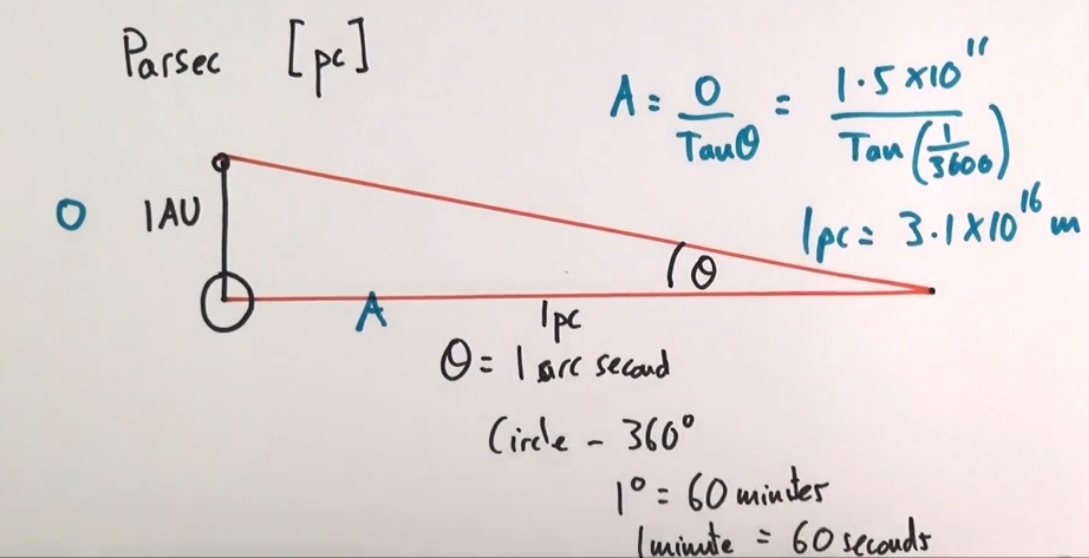 Parsec [pc]
A = O/Tanθ = 1.5 × 10^11/Tan(1/3600)
1pc = 3.1 × 10^16 m
O 1AU
θ
A
1pc
θ = 1 arc second
Circle - 360°
1° = 60 minutes
1 minute = 60 seconds